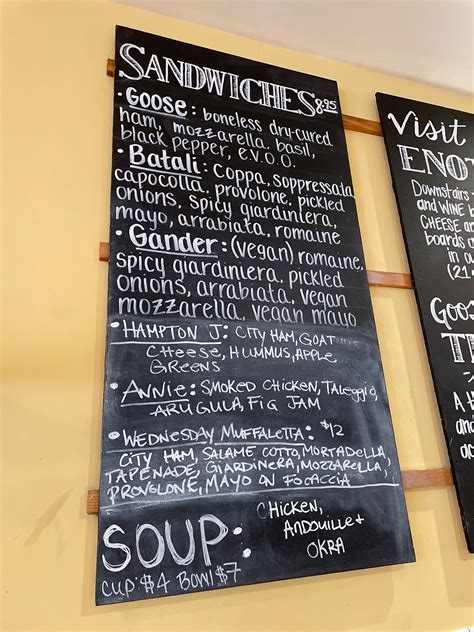 SANDWICHES 8.95
• Goose: boneless dry-cured
ham, mozzarella, basil,
black pepper, e.v.o.o.
• Batali: coppa, soppressada
capocolla, provolone, pickled
onions, spicy giardiniera,
mayo, arrabiata, romaine
• Gander: (vegan) romaine,
spicy giardiniera, pickled
onions, arrabiata, vegan
mozzarella, vegan mayo
• HAMPTON J: CITY HAM, GOAT
CHEESE, HUMMUS, APPLE
GREENS
• ANNIE: SMOKED CHICKEN, TALEGGIO
ARUGULA, FIG JAM
• WEDNESDAY MUFFALETTA: $12
CITY HAM, SALAME COTTO, MORTADELLA,
TAPENADE, GIARDINERA, MOZZARELLA,
PROVOLONE, MAYO ON FOCACCIA
SOUP: CHICKEN,
ANDOUILLE +
OKRA
CUP: $4 BOWL $7
Visit
ENOT
Downstairs
and WINE
CHEESE
boards
in a
(21
Goos
T
A
and